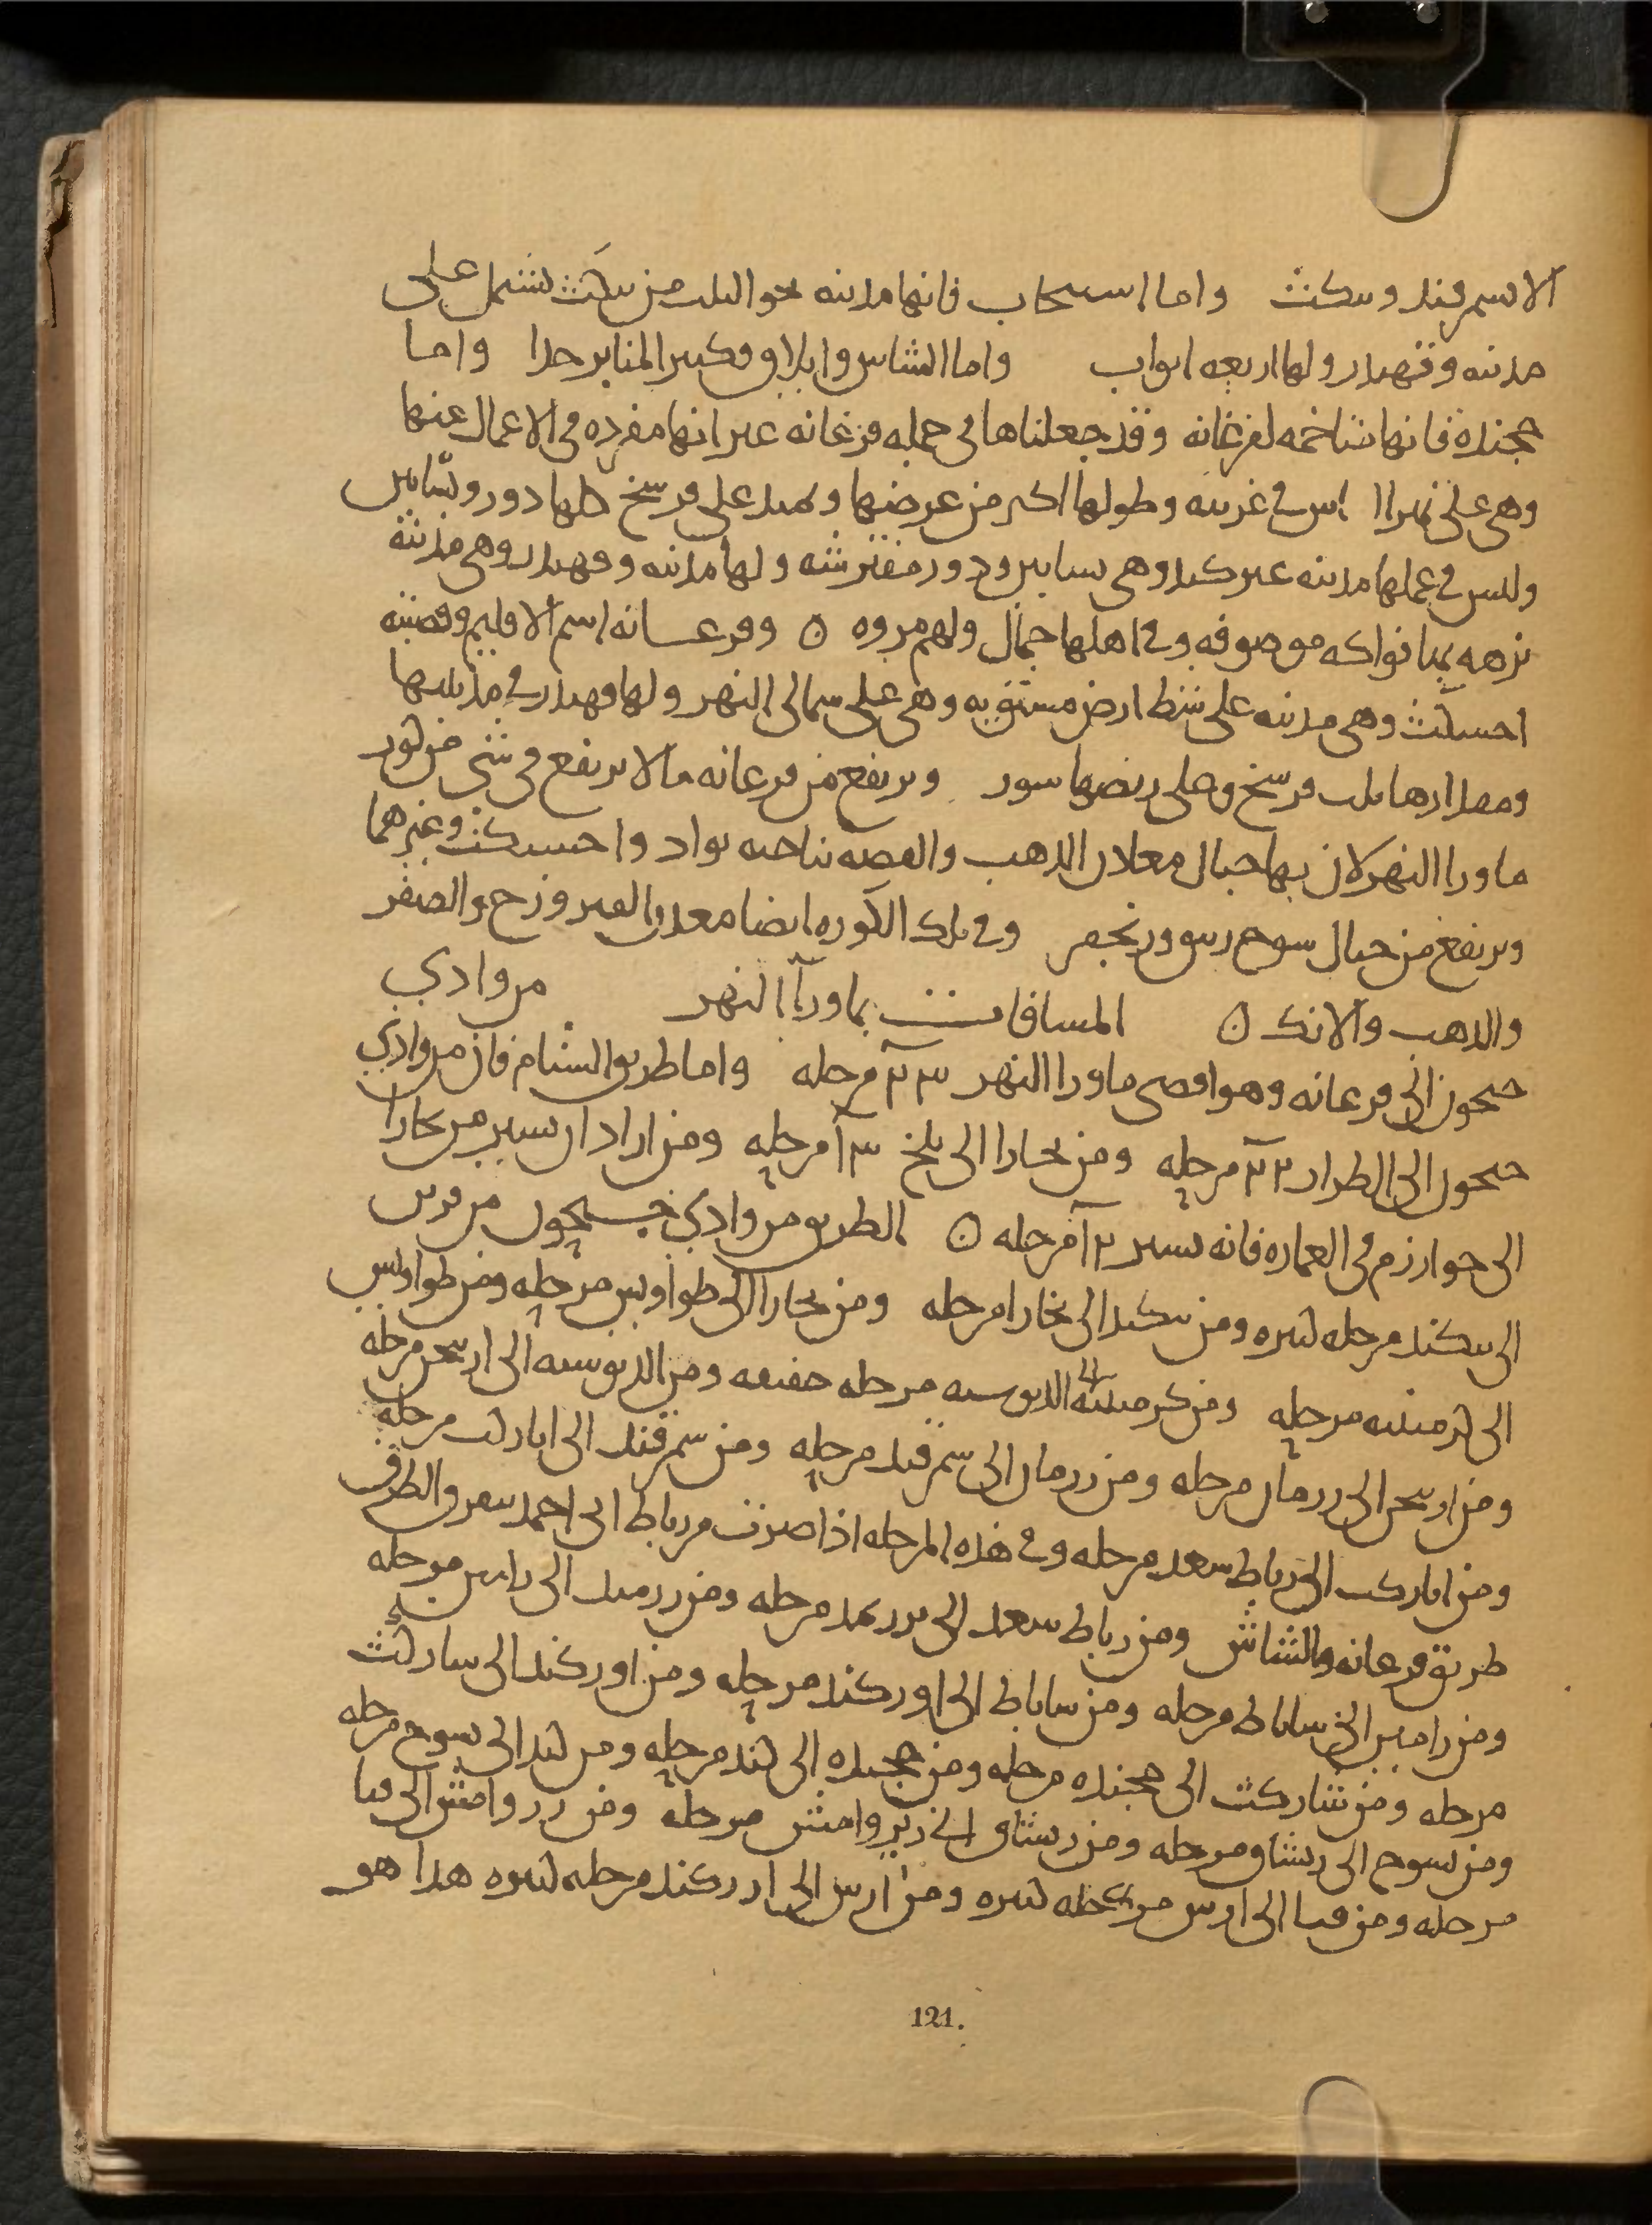 الا سمرقند وبنكث واما اسبيجاب فانها مدينه نحو الثلث من بنكث تشتمل على
مدينه وقهندر ولها اربعه ابواب واما الشاش وايلاق فكبير المنابر جدا واما
خجنده فانها متاخمه لفرغانه وقد جعلناها فى جمله فرغانه غير انها مفرده فى الاعمال عنها
وهى على نهر الشاس فى غربيه وطولها اكبر من عرضها ويمتد على فرسخ كلها دور وبساتين
وليس فى عملها مدينه غير كند وهى بساتين ودور مفترشه ولها مدينه وقهندر وهى مدينه
نزهه بها فواكه موصوفه وفى اهلها جمال ولهم مروه ٥ وفرغانه اسم الاقليم وقصبته
اخسيكث وهى مدينه على شط ارض مستويه وهى على شمالى النهر ولها قهندر فى مدينتها
ومقدارها ثلث فرسخ وعلى ربضها سور ويرتفع من فرغانه ما لا يرتفع فى شى من كور
ماورا النهر لان بها جبال معادن الذهب والفضه بناحيه بواد واخسيكث وغيرهما
ويرتفع من جبال سوخ زيبق وزنجفر وفى تلك الكوره ايضا معدن الفيروزج والصفر
والذهب والانك ٥ المسافات بماورآ النهر من وادي
جيحون الى فرغانه وهو اقصى ماورا النهر ٢٣ مرحله واما طريق الشام فان من وادي
جيحون الى الطراز ٢٢ مرحله ومن بخارا الى بلخ ١٣ مرحله ومن اراد ان يسير من بخارا
الى خوارزم فى العماره فانه يسير ١٢ مرحله ٥ الطريق من وادي جيحون من فربر
الى بيكند مرحله كبيره ومن بيكند الى بخارا مرحله ومن بخارا الى طواويس مرحله ومن طواويس
الى كرمينيه مرحله ومن كرمينيه الى الدبوسيه مرحله خفيفه ومن الدبوسيه الى اربنجن مرحله
ومن اربنجن الى زرمان مرحله ومن زرمان الى سمرقند مرحله ومن سمرقند الى اباركث مرحله
ومن اباركث الى رباط سعد مرحله وفى هذه المرحله اذا صرت من رباط ابى احمد يتفرق الطرق
طريق فرغانه والشاش ومن رباط سعد الى بورنمد مرحله ومن زرميد الى زامين مرحله
ومن زامين الى ساباط مرحله ومن ساباط الى اوركند مرحله ومن اوركند الى شاركث
مرحله ومن شاركث الى خجنده مرحله ومن خجنده الى كند مرحله ومن كند الى سوخ مرحله
ومن سوخ الى رشتان مرحله ومن رشتان الى زبروامش مرحله ومن زبروامش الى قبا
مرحله ومن قبا الى اوش مرحله كبيره ومن اوش الى اوزركند مرحله كبيره هذا هو
121.